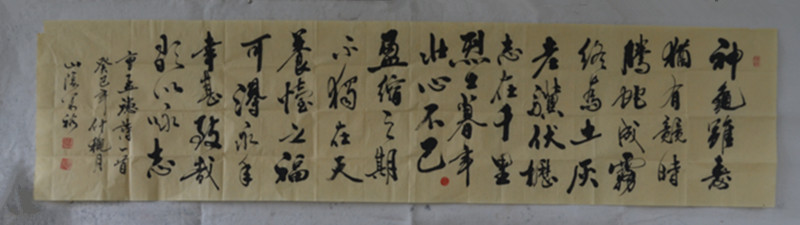 神龜雖壽
猶有競時
騰蛇成霧
終為土灰
老驥伏櫪
志在千里
烈士暮年
壯心不已
盈縮之期
不獨在天
養怡之福
可得永年
幸甚至哉
歌以咏志
曹孟德詩一首
癸巳年 月